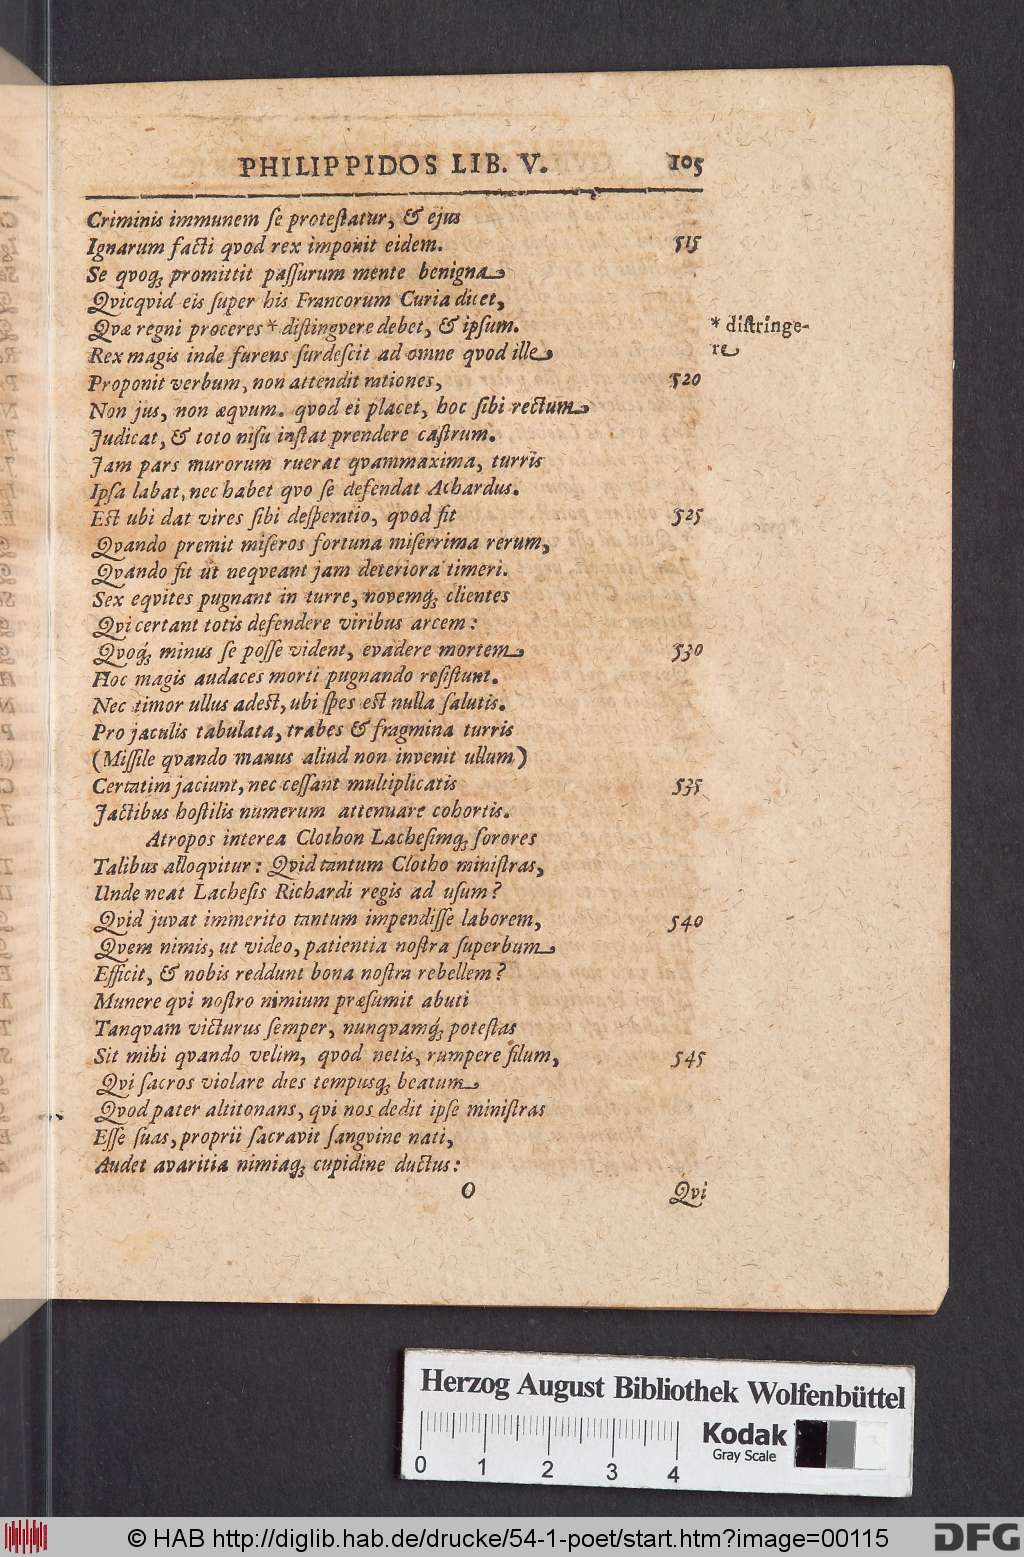 PHILIPPIDOS LIB. V. 105
Criminis immunem ſe proteſtatur, & ejus
Ignarum facti qvod rex imponit eidem. 515
Se qvoqꝫ promittit paſſurum mente benigna
Qvicqvid eis ſuper his Francorum Curia dicet,
Qvæ regni proceres * diſtingvere debet, & ipſum. * diſtringe-
Rex magis inde furens ſurdeſcit ad omne qvod ille re
Proponit verbum, non attendit rationes, 520
Non jus, non æqvum. qvod ei placet, hoc ſibi rectum
Judicat, & toto niſu inſtat prendere caſtrum.
Jam pars murorum ruerat qvammaxima, turris
Ipſa labat, nec habet qvo ſe defendat Achardus.
Eſt ubi dat vires ſibi deſperatio, qvod fit 525
Qvando premit miſeros fortuna miſerrima rerum,
Qvando fit ut neqveant jam deteriora timeri.
Sex eqvites pugnant in turre, novemqꝫ́ clientes
Qvi certant totis defendere viribus arcem:
Qvoqꝫ́ minus ſe poſſe vident, evadere mortem 530
Hoc magis audaces morti pugnando reſiſtunt.
Nec timor ullus adeſt, ubi ſpes eſt nulla ſalutis.
Pro jaculis tabulata, trabes & fragmina turris
(Miſſile qvando manus aliud non invenit ullum)
Certatim jaciunt, nec ceſſant multiplicatis 535
Jactibus hoſtilis numerum attenuare cohortis.
Atropos interea Clothon Lacheſimqꝫ ſorores
Talibus alloqvitur: Qvid tantum Clotho miniſtras,
Unde neat Lacheſis Richardi regis ad uſum?
Qvid juvat immerito tantum impendiſſe laborem, 540
Qvem nimis, ut video, patientia noſtra ſuperbum
Efficit, & nobis reddunt bona noſtra rebellem?
Munere qvi noſtro nimium præſumit abuti
Tanqvam victurus ſemper, nunqvamqꝫ́ poteſtas
Sit mihi qvando velim, qvod netis, rumpere filum, 545
Qvi ſacros violare dies tempusqꝫ beatum
Qvod pater altitonans, qvi nos dedit ipſe miniſtras
Eſſe ſuas, proprii ſacravit ſangvine nati,
Audet avaritia nimiaqꝫ cupidine ductus:
O Qvi
Herzog August Bibliothek Wolfenbüttel
Kodak
Gray Scale
0 1 2 3 4
© HAB http://diglib.hab.de/drucke/54-1-poet/start.htm?image=00115
DFG